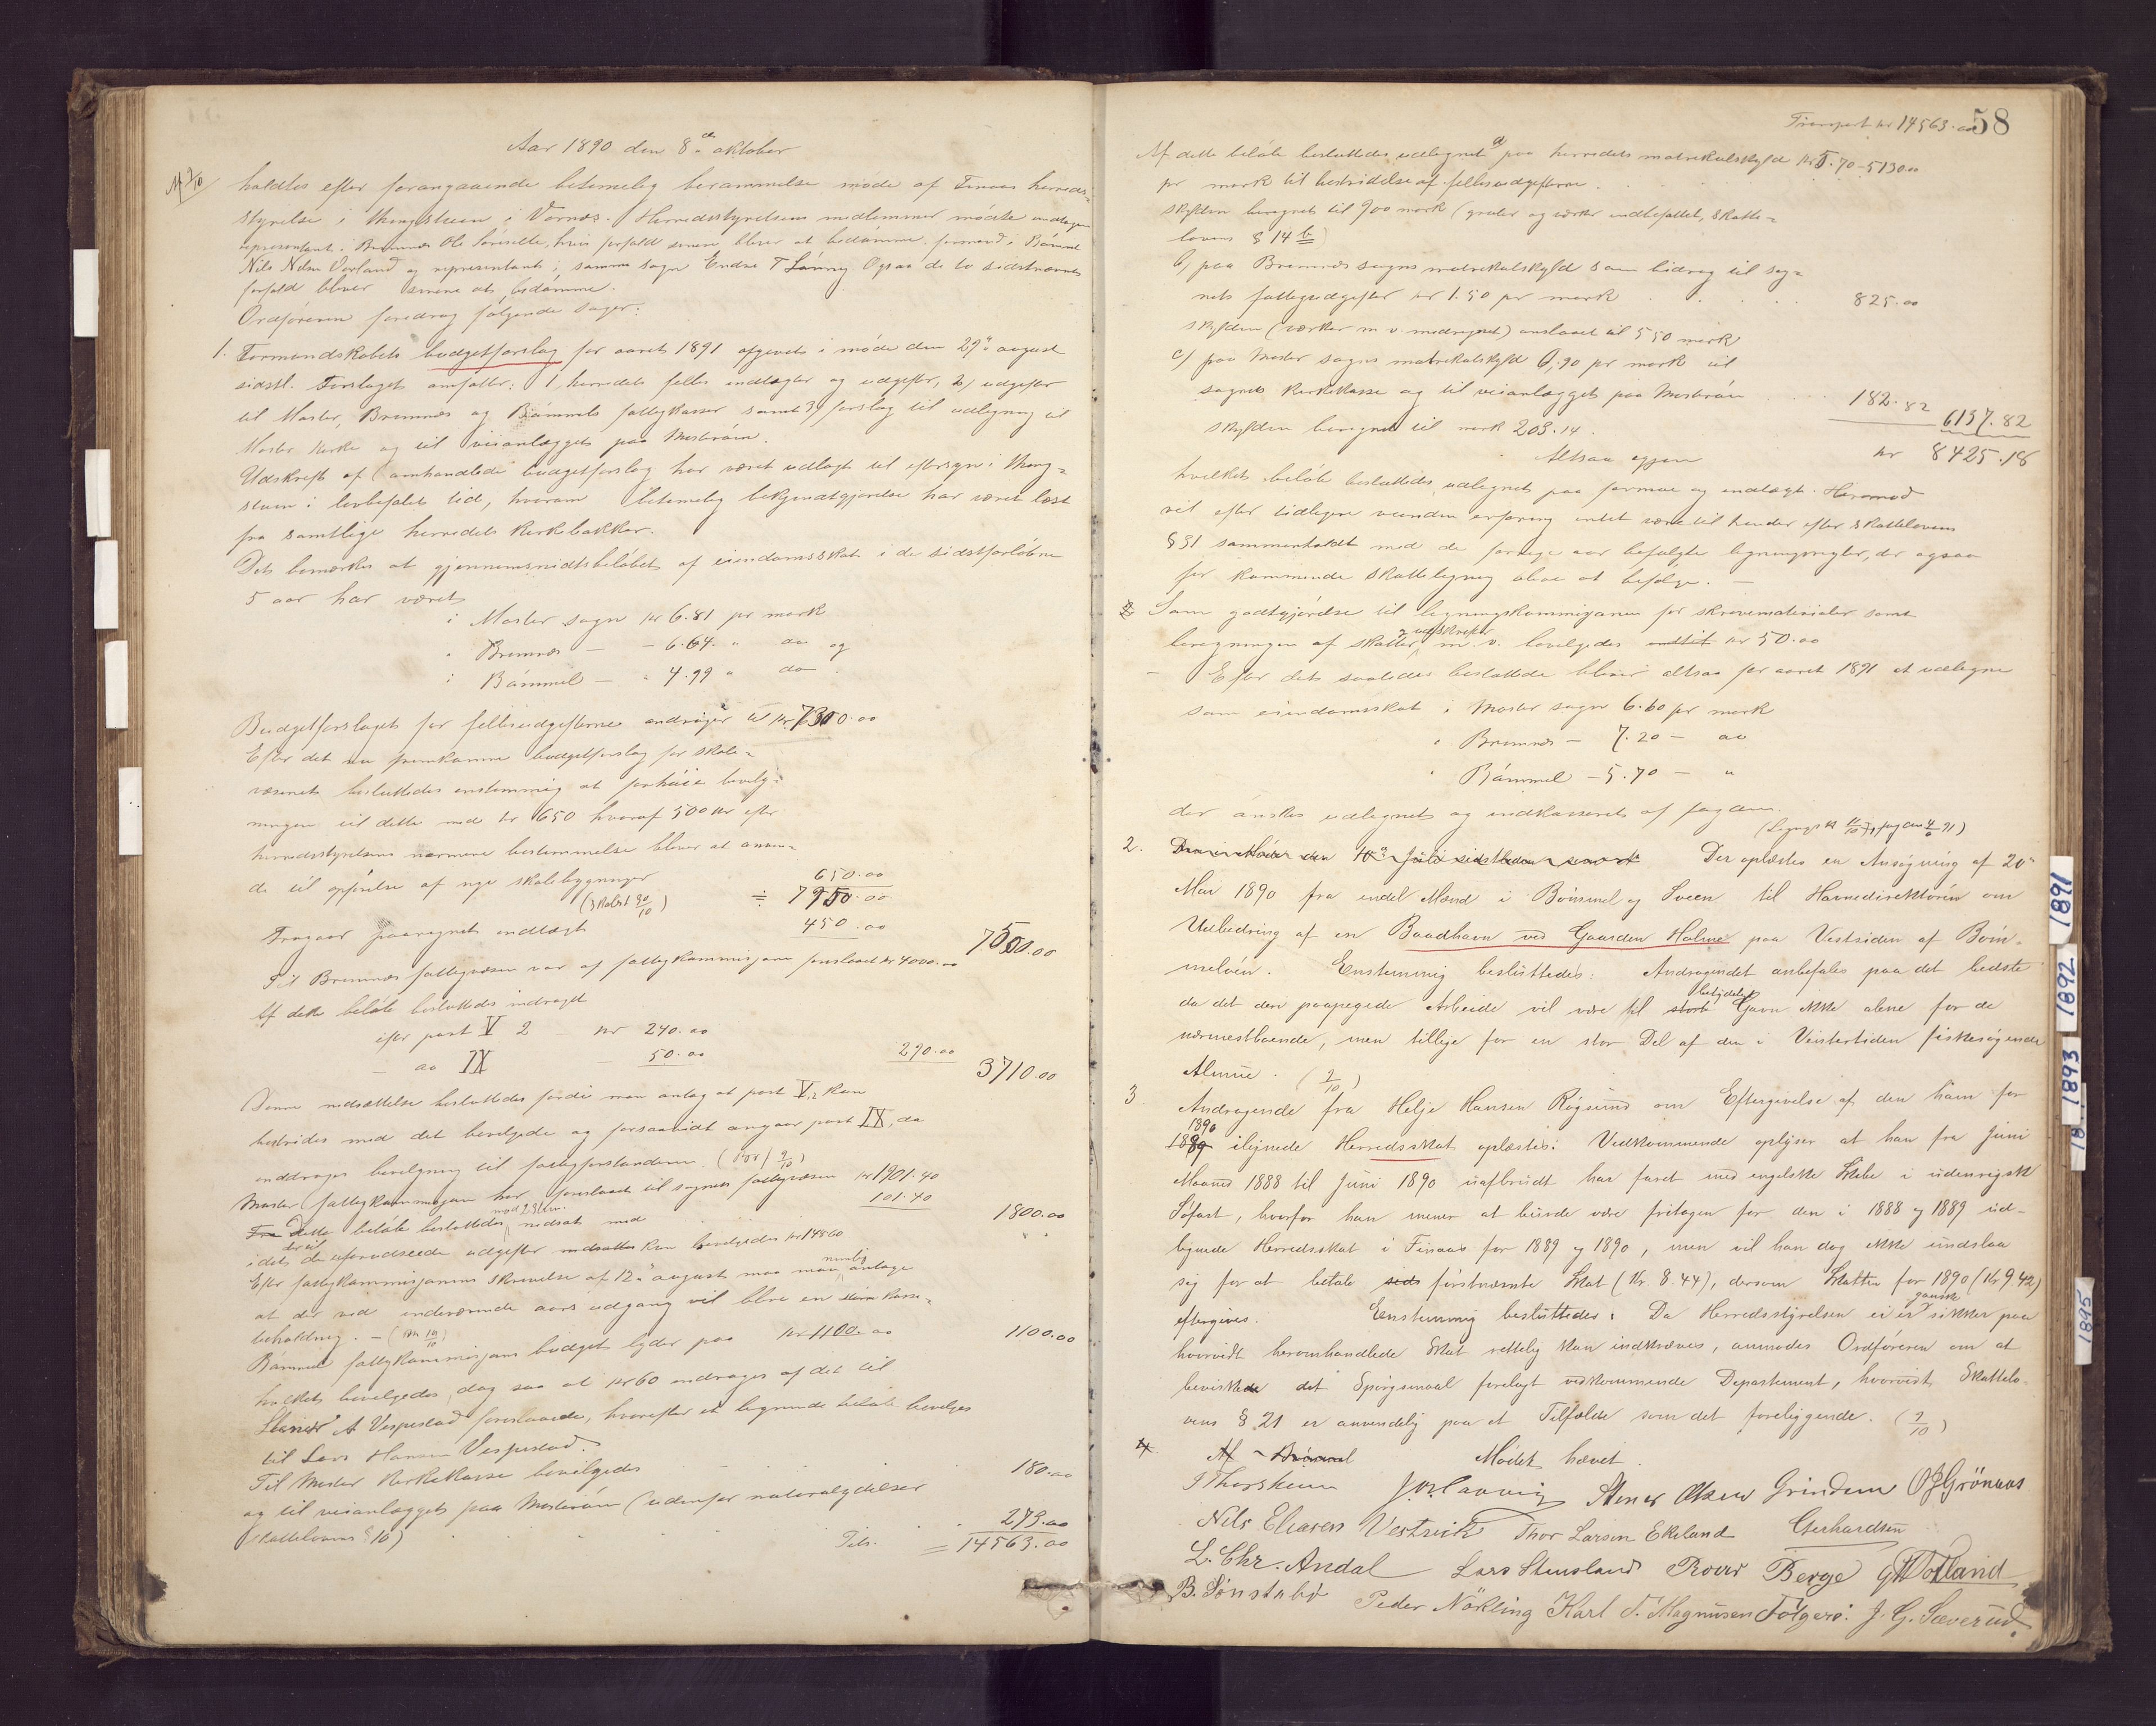 Aar 1890 den 8de oktober
holdtes efter forangaaende betimelig berammelse møde af Finaas herreds-
styrelse i thingstuen i Vornæs. Herredsstyrelsens medlemmer mødte undtagen
representant i Bremnæs Ole Sørisette, hvis forfald senere bliver at bedømme, formand i Bømmel
Nils Nilsen Vorland og representant i samme sogn Endre T Lønning Ogsaa de to sidstnævnte
forfald bliver senere at bedømme.
Ordføreren foredrog følgende sager:
1. Formandskabets budgetforslag for aaret 1891 afgivet i møde den 29de august
sidstl. Forslaget omfatter: 1, herredets felles indtægter og udgifter, 2, udgifter
til Moster, Bremnæs og Bømmels fattigkasser samt 3, forslag til udligning til
Moster kirke og til veianlægget paa Mosterøen.
Udskrift af omhandlede budgetforslag har været udlagt til eftersyn i thing-
stuen i lovbefalet tid, hvorom betimelig bekjendtgjørelse har været læst
fra samtlige herredets kirkebakker.
Det bemærkes at gjennemsnidtsbeløbet af eiendomsskat i de sidstforløbne
5 aar har været
i Moster sogn kr 6.81 pr mark
" Bremnæs — - 6.64. " do og
i Bømmel — " 4.99 " do
Budgetforslaget for fellesudgifterne andrager til kr 7300.00
Efter det nu fremkomne budgetforslag for skole-
væsenet besluttedes enstemmig at forhøie bevilg-
ningen til dette med kr 650 hvoraf 500 kr efter
herredsstyrelsens nærmere bestemmelse bliver at anven-
de til opførelse af nye skolebygninger 650.00
(skolest 30/10) ÷ 7950.00
Fragaar paaregnet indtægt 450.00
7500.00
Til Bremnæs fattigvæsen var af fattigkommisjonen foreslaaet kr 4000.00
Af dette beløb besluttedes inddraget
efter post V 2 — kr 240.00
— do IX — 50.00 290.00
3710.00
Denne nedsættelse besluttedes fordi man antog at post V,2 kan
bestrides med det bevilgede og forsaavidt angaar post IX, da
inddrages bevilgning til fattigforstanderen. ( 9/10)
Moster fattigkommisjon har foreslaaet til sognets fattigvæsen kr 1901.40
Dette beløb besluttedes nedsat med 101.40
1800.00
idet de udgifter kan bevilgedes kr 1400
Efter fattigkommisjonens skrivelse af 12te august maa man nemlig antage
at der ved indeværende aars udgang vil blive en kasse-
beholdning. —
Bømmels fattigkommisjons budget lyder paa kr 1100.00 1100.00
hvilket bevilgedes, dog saa at kr 60 inddrages af det til
Stener A Vespestad foreslaaede, hvorefter et lignende beløb bevilges
til Lars Hansen Vespestad.
Til Moster kirkekasse bevilgedes 180.00
og til veianlægget paa Mosterøen (udenfor naturalydelser
skattelovens § 16) 273.00
Tils. = 14563.00
Transport kr 14563.00 58
Af dette beløb besluttedes udlignet a paa herredets matrikulskyld kr 5.70 - 5130.00
pr mark til bestridelse af fellesudgifterne.
Skylden beregnet til 900 mark (gruber og værker indbefattet, skatte-
lovens § 14 b)
b, paa Bremnæs sogns matrikulskyld som bidrag til sog-
nets fattigudgifter kr 1.50 pr mark 825.00
Skylden (værker m. v. medregnet) anslaaet til 550 mark
c, paa Moster sogns matrikulskyld 0,90 pr mark til
sognets kirkekasse og til veianlægget paa Mosterøen 182.82 6137.82
Skylden beregnet til mark 203.14.
Altsaa igjen kr 8425.18
hvilket beløb besluttedes udlignet paa formue og indtægt. Herimod
vil efter tidligere vunden erfaring intet være til hinder efter skattelovens
§ 31 sammenholdt med de forrige aar befulgte ligningsregler, der ogsaa
for kommende skatteligning blive at befølge. —
Som godtgjørelse til ligningskommisjonen for skrivematerialer samt
beregningen af skatter, og udskrifter m. v. bevilgedes indtil kr 50.00
— Efter det saaledes besluttede bliver altsaa for aaret 1891 at udligne
som eiendomsskat i Moster sogn 6.60 pr mark
" Bremnæs — 7.20 — do
" Bømmel — 5.70 — "
der ønskes udlignet og indkasseret af fogden.
2. Der oplæstes en Ansøgning af 20de
Mai 1890 fra endel Mænd i Bømmel og Sveen til Havnedirektøren om
Udbedring af en Baadhavn ved Gaarden Holme paa Vestsiden af Bøm-
meløen. Enstemmig besluttedes: Andragendet anbefales paa det bedste
da det deri paapegede Arbeide vil være til stort betydelig Gavn ikke alene for de
nærmestboende, men tillige for en stor Del af den i Vintertiden fiskesøgende
Almue. (9/10)
3. Andragende fra Helje Hansen Røgsund om Eftergivelse af den ham for
1889 1890 ilignede Herredsskat oplæstes. Vedkommende oplyser at han fra Juni
Maaned 1888 til Juni 1890 uafbrudt har faret med engelske Skibe i udenrigsk
Søfart, hvorfor han mener at burde være fritagen for den i 1888 og 1889 ud-
lignede Herredsskat i Finaas for 1889 og 1890, men vil han dog ikke undslaa
sig for at betale sids førstnævnte Skat (Kr. 8.44), dersom Skatten for 1890 (Kr 9.42)
eftergives. Enstemmig besluttedes: Da Herredsstyrelsen ei er ganske sikker paa
hvorvidt heromhandlede Skat rettelig kan indkræves, anmodes Ordføreren om at
bevirke det Spørgsmaal forelagt vedkommende Departement, hvorvidt Skattelo-
vens § 21 er anvendelig paa et Tilfælde som det foreliggende. (9/10)
4. Af Bømmel Mødet hævet.
T Thorsheim Stener Olsen Grindem O J Grönaas
Nils Eliasen Vestvik Thor Larsen Ekeland Gerhardsen
L. Chr. Andal Lars Stensland Berge
B. Sønstabø Peder Nökling Karl T. Magnusen Folgerø: J. G. Sæverud.
1891
1892
1893
18
1895